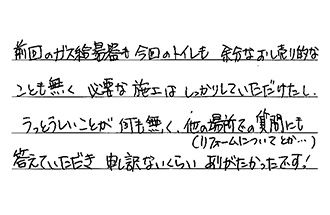 前回のガス給湯器も今回のトイレも 余分なおし売り的な
ことも無く 必要な施工は しっかりしていただけたし、
うっとうしいことが 何も無く、他の場所での質問にも
(リフォームについてとか…)
答えていただき 申し訳ないくらい ありがたかったです!